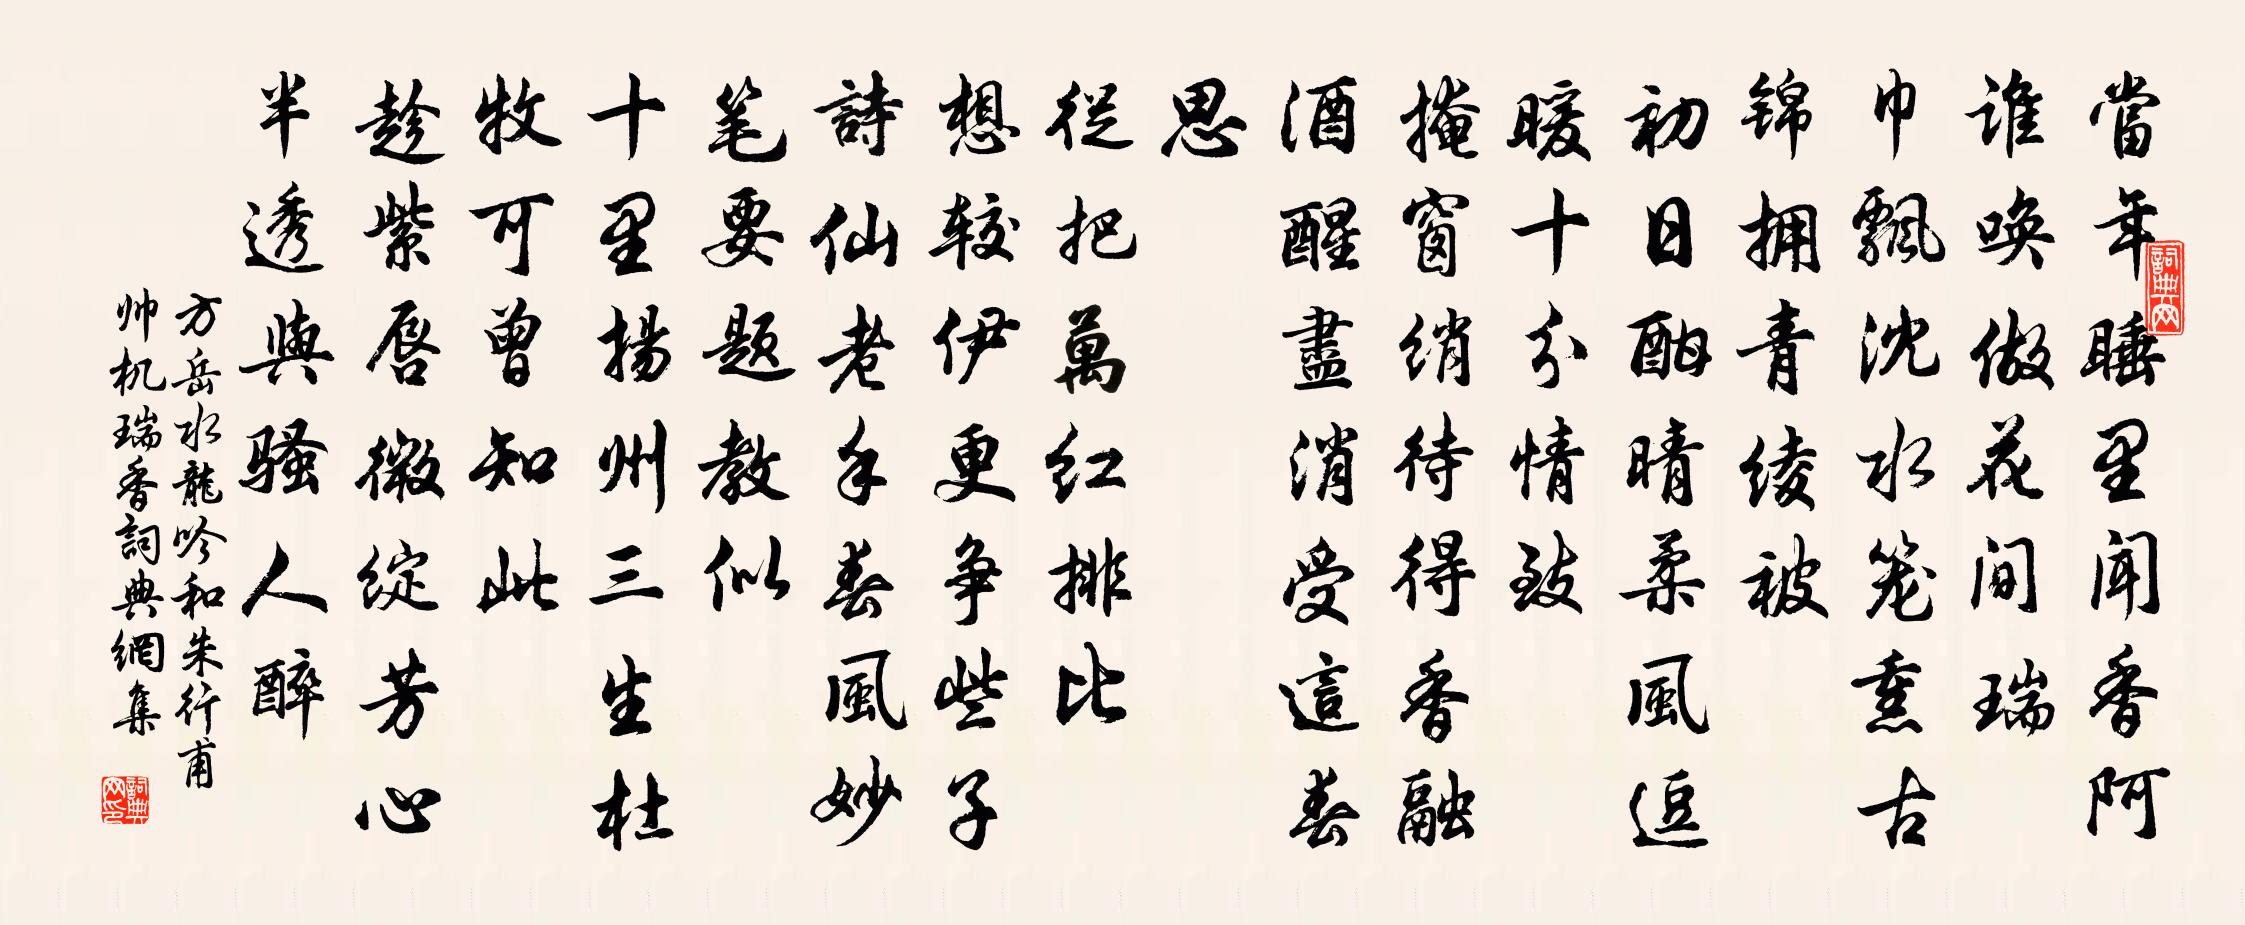 當年睡里闻香阿
谁唤做花间瑞
巾飄沈水笼熏古
锦拥青绫被
初日酣晴柔風逗
暖十分情致
掩窗绡待得香融
酒醒盡消受這春
思
從把萬红排比
想较伊更争些子
詩仙老手春風妙
笔要题教似
十里揚州三生杜
牧可曾知此
趁紫唇微绽芳心
半透與骚人醉
方岳水龍吟和朱行甫
帅机瑞香詞典網集
詞典网
詞典网印